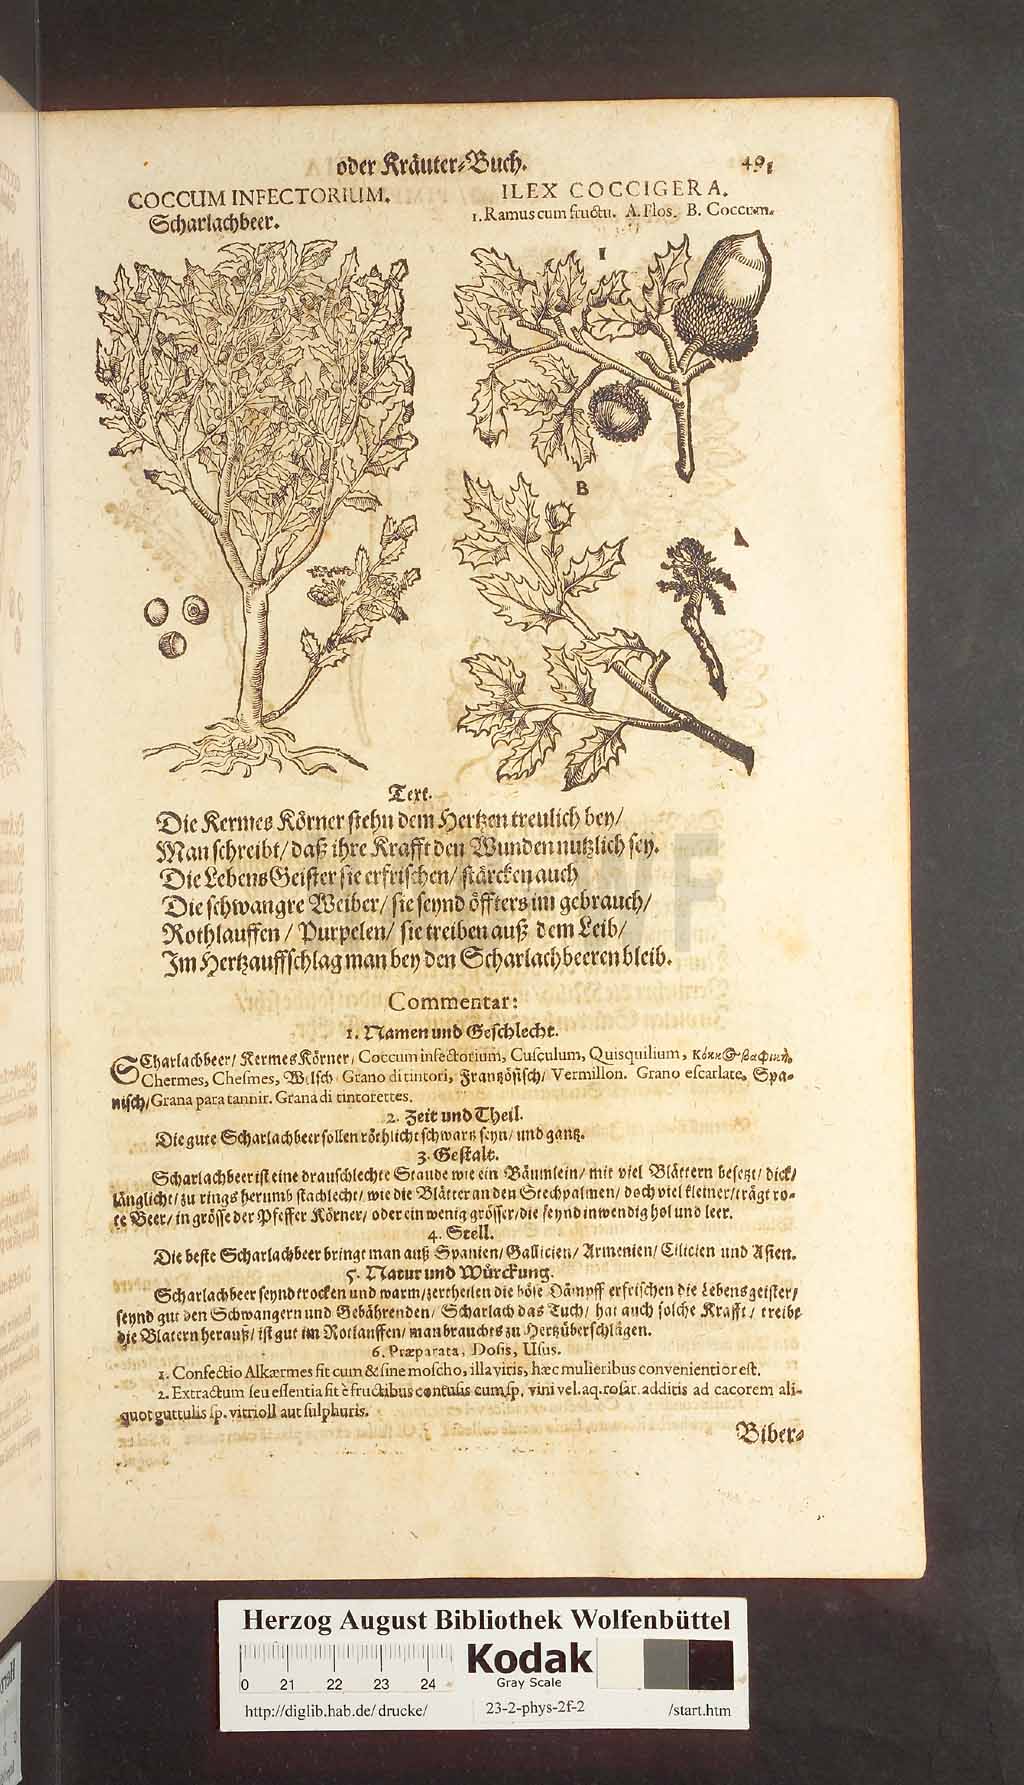 oder Kräuter-Buch.
491
COCCUM INFECTORIUM.
Scharlachbeer.
ILEX COCCIGERA.
1. Ramus cum fructu. A. Flos. B. Coccum.
1
B
A
Text.
Die Kermes Körner stehn dem Hertzen treulich bey/
Man schreibt/ daß ihre Krafft den Wunden nutzlich sey.
Die LebensGeister sie erfrischen/ stärcken auch
Die schwangre Weiber/ sie seynd öffters im gebrauch/
Rothlauffen/ Purpelen/ sie treiben auß dem Leib/
Im Hertzauffschlag man bey den Scharlachbeeren bleib.
Commentar:
1. Namen und Geschlecht.
SCharlachbeer/ Kermes Körner/ Coccum infectorium, Cusculum, Quisquilium,
Chermes, Chesmes, Welsch Grano di tintori, Frantzösisch/ Vermillon. Grano escarlate. Spa-
nisch/ Grana para tannir. Grana di tintorettes.
2. Zeit und Theil.
Die gute Scharlachbeer sollen röthlicht schwartz seyn/ und gantz.
3. Gestalt.
Scharlachbeer ist eine drauschlechte Staude wie ein Bäumlein/ mit viel Blättern besetzt/ dick/
länglicht/ zu rings herumb stachlecht/ wie die Blätter an den Stechpalmen/ doch viel kleiner/ trägt ro-
te Beer/ in grösse der Pfeffer Körner/ oder ein wenig grösser/ die seynd inwendig hol und leer.
4. Stell.
Die beste Scharlachbeer bringt man auß Spanien/ Gallicien/ Armenien/ Cilicien und Asien.
5. Natur und Würckung.
Scharlachbeer seynd trocken und warm/ zertheilen die böse Dämpff erfrischen die Lebensgeister/
seynd gut den Schwangern und Gebährenden/ Scharlach das Tuch/ hat auch solche Krafft/ treibt
die Blatern herauß/ ist gut im Rotlauffen/ man brauchts zu Hertzüberschlägen.
6. Præparata, Dosis, Usus.
1. Confectio Alkærmes fit cum & sine moscho, illa viris, hæc mulieribus convenientior est.
2. Extractum seu essentia fit è fructibus contusis cum sp. vini vel. aq. rosar. additis ad cacorem ali-
quot guttulis sp. vitrioll aut sulphuris.
Biber-
Herzog August Bibliothek Wolfenbüttel
Kodak
Gray Scale
0 21 22 23 24
http://diglib.hab.de/drucke/ 23-2-phys-2f-2 /start.htm